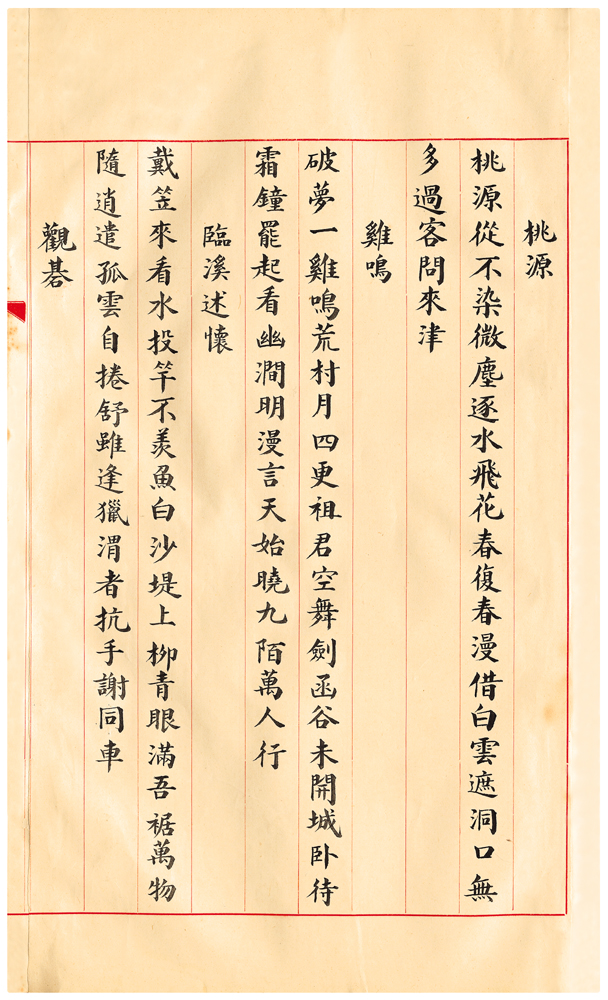 桃源
桃源從不染微塵逐水飛花春復春漫借白雲遮洞口無
多過客問來津
雞鳴
破夢一雞鳴荒村月四更祖君空舞劍函谷未開城卧待
霜鐘罷起看幽澗明漫言天始曉九陌萬人行
臨溪述懷
戴笠來看水投竿不羨魚白沙堤上柳青眼滿吾裾萬物
隨逍遣孤雲自捲舒雖逢獵渭者抗手謝同車
觀碁